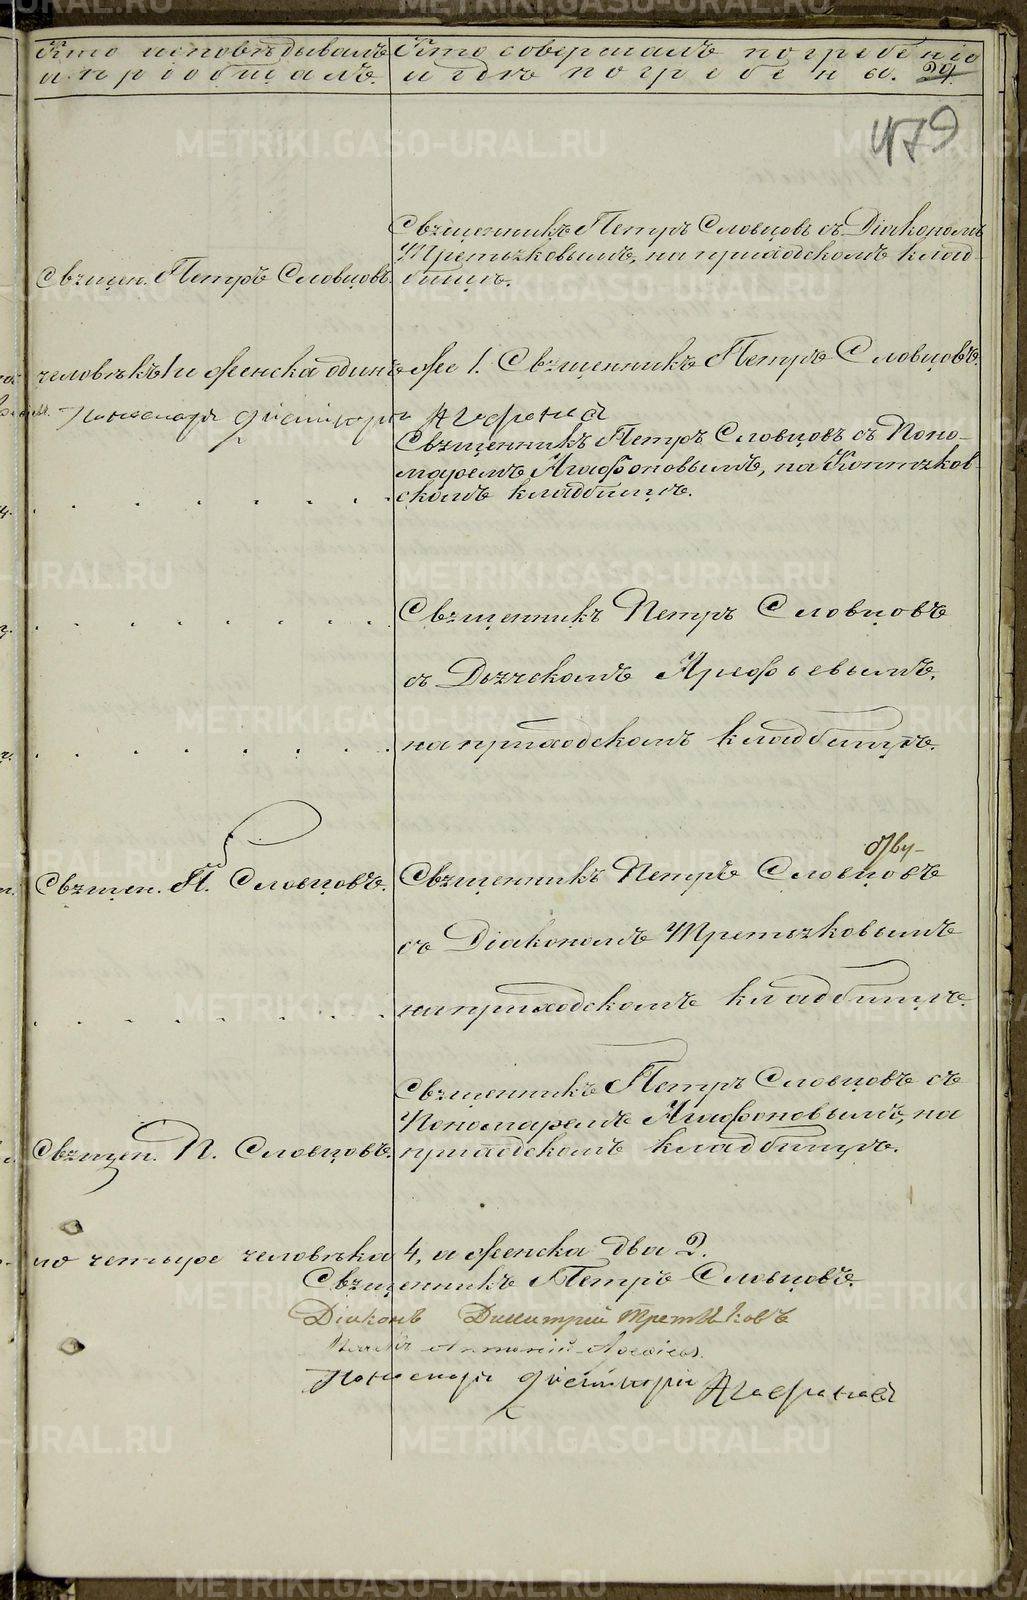 Кто исповѣдывалъ
и пріобщалъ.
Кто совершалъ погребеніе
и гдѣ погребены.
479
Священникъ Петръ Словцовъ съ Діакономъ
Третьяковымъ, на приходскомъ клад-
бищѣ.
Священ. Петръ Словцовъ.
человѣкъ 1 и женска одинъ же 1. Священникъ Петръ Словцовъ.
Пономарь Димитрій Агафонов
Священникъ Петръ Словцовъ съ Поно-
маремъ Агафоновымъ, на
скомъ кладбищѣ.
Священникъ Петръ Словцовъ
съ Дьячкомъ Арефьевымъ,
на приходскомъ кладбищѣ.
Священ. П. Словцовъ.
Священникъ Петръ Словцовъ
съ Діакономъ Третьяковымъ
на приходскомъ кладбищѣ.
Священникъ Петръ Словцовъ съ
Пономаремъ Агафоновымъ, на
приходскомъ кладбищѣ.
Священ. П. Словцовъ.
по четыре человѣка 4, а женска два 2.
Священникъ Петръ Словцовъ.
Діаконъ Димитрій Третьяковъ
Пономарь Димитрій Агафоновъ
METRIKI.GASO-URAL.RU